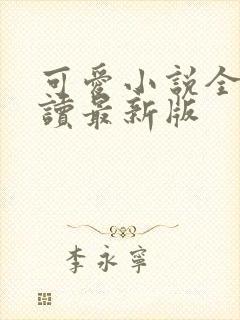 可愛小說全
讀最新版
李永寧